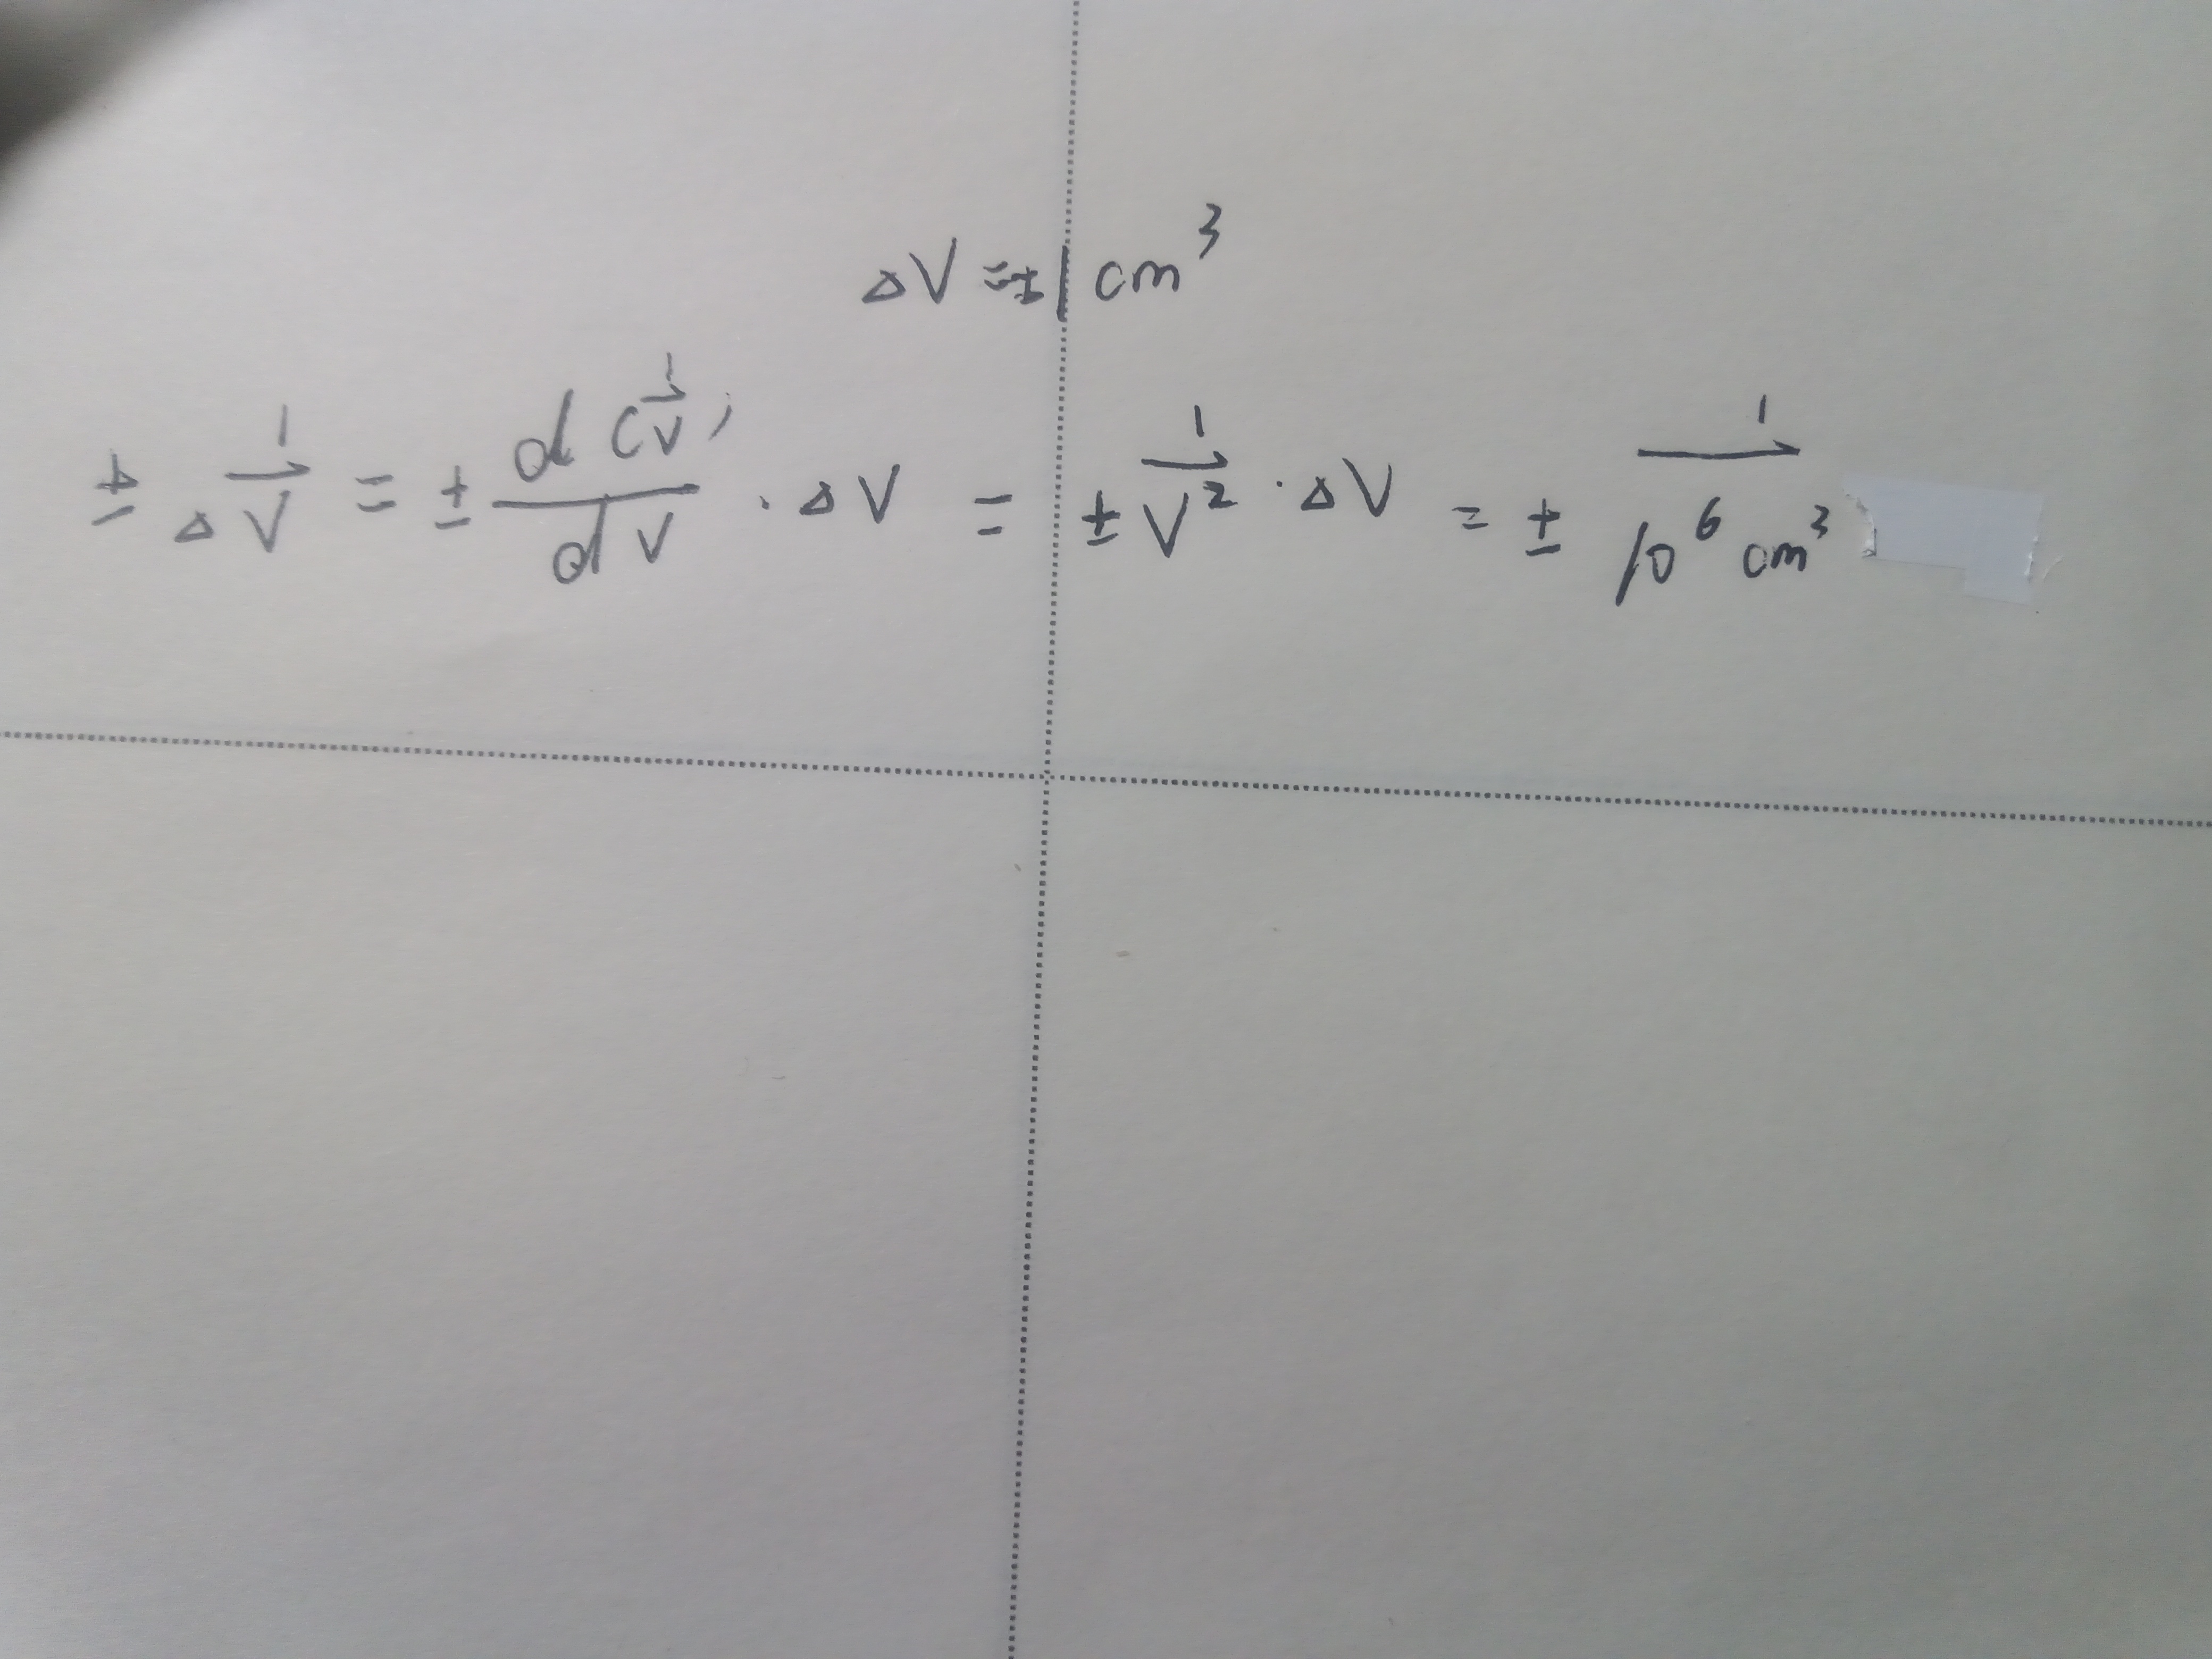 ΔV = ±1 cm³
± Δ 1/V = ± d(1/V)/dV · ΔV = ± 1/V² · ΔV = ± 1/10⁶ cm³